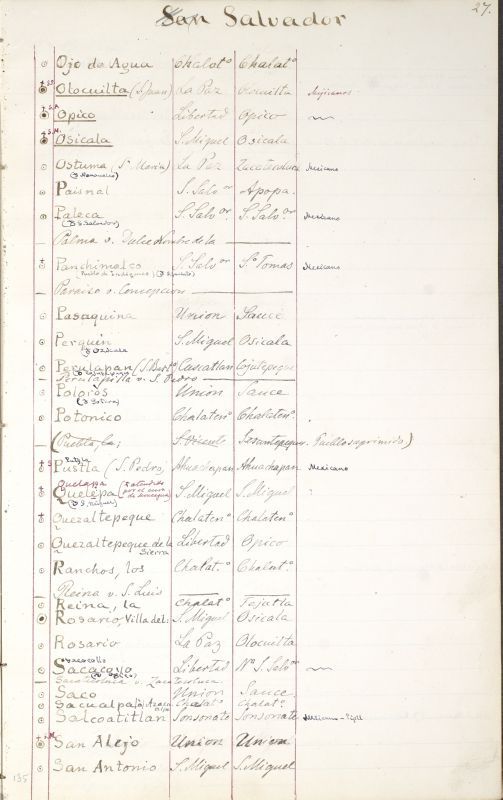 San Salvador
27.
Ojo de Agua Chalatº Chalatº
Olocuilta (S. Juan) La Paz Olocuilta Mejicanos
Opico Libertad Opico
Osicala S. Miguel Osicala
Ostuma (S. María) La Paz Zacatecoluca Mexicano
Paisnal S. Salvor Apopa.
Paleca S. Salvor. S. Salvor. Mexicano
(S. Salvador)
Palma v. Dulce Nombre de la
Panchimalco S. Salvor Sº Tomas Mexicano
Paraiso v. Concepcion
Pasaquina Union Sauce
Perquin S. Miguel Osicala
(Osicala
Perulapan (S. Bartº Cuscatlan Cojutepeque
Perulapilla v. S. Pedro
Poloros Union Sauce
Potonico Chalatenº Chalatenº
(Puebla, la; S. Vicente Pueblo suprimido)
Pustla (S. Pedro, Ahuachapan Ahuachapan Mexicano
Quelapa
Quelepa S. Miguel S. Miguel
(S. Miguel)
Quezaltepeque Chalatenº Chalatenº
Quezaltepeque de la Libertad Opico
Sierra
Ranchos, los Chalat.º Chalat.º
Reina v. S. Luis
Reina, la Chalatº Tejutla
Rosario, Villa del: S. Miguel Osicala
Rosario La Paz Olocuilta
Sacacoyo Libertad Nº S. Salvor
Saco Union Sauce
Sacualpa Chalatº Chalatº.
Salcoatitlan Sonsonate Sonsonate Mexicano - Pipil
San Alejo Union Union
San Antonio S. Miguel S. Miguel
135